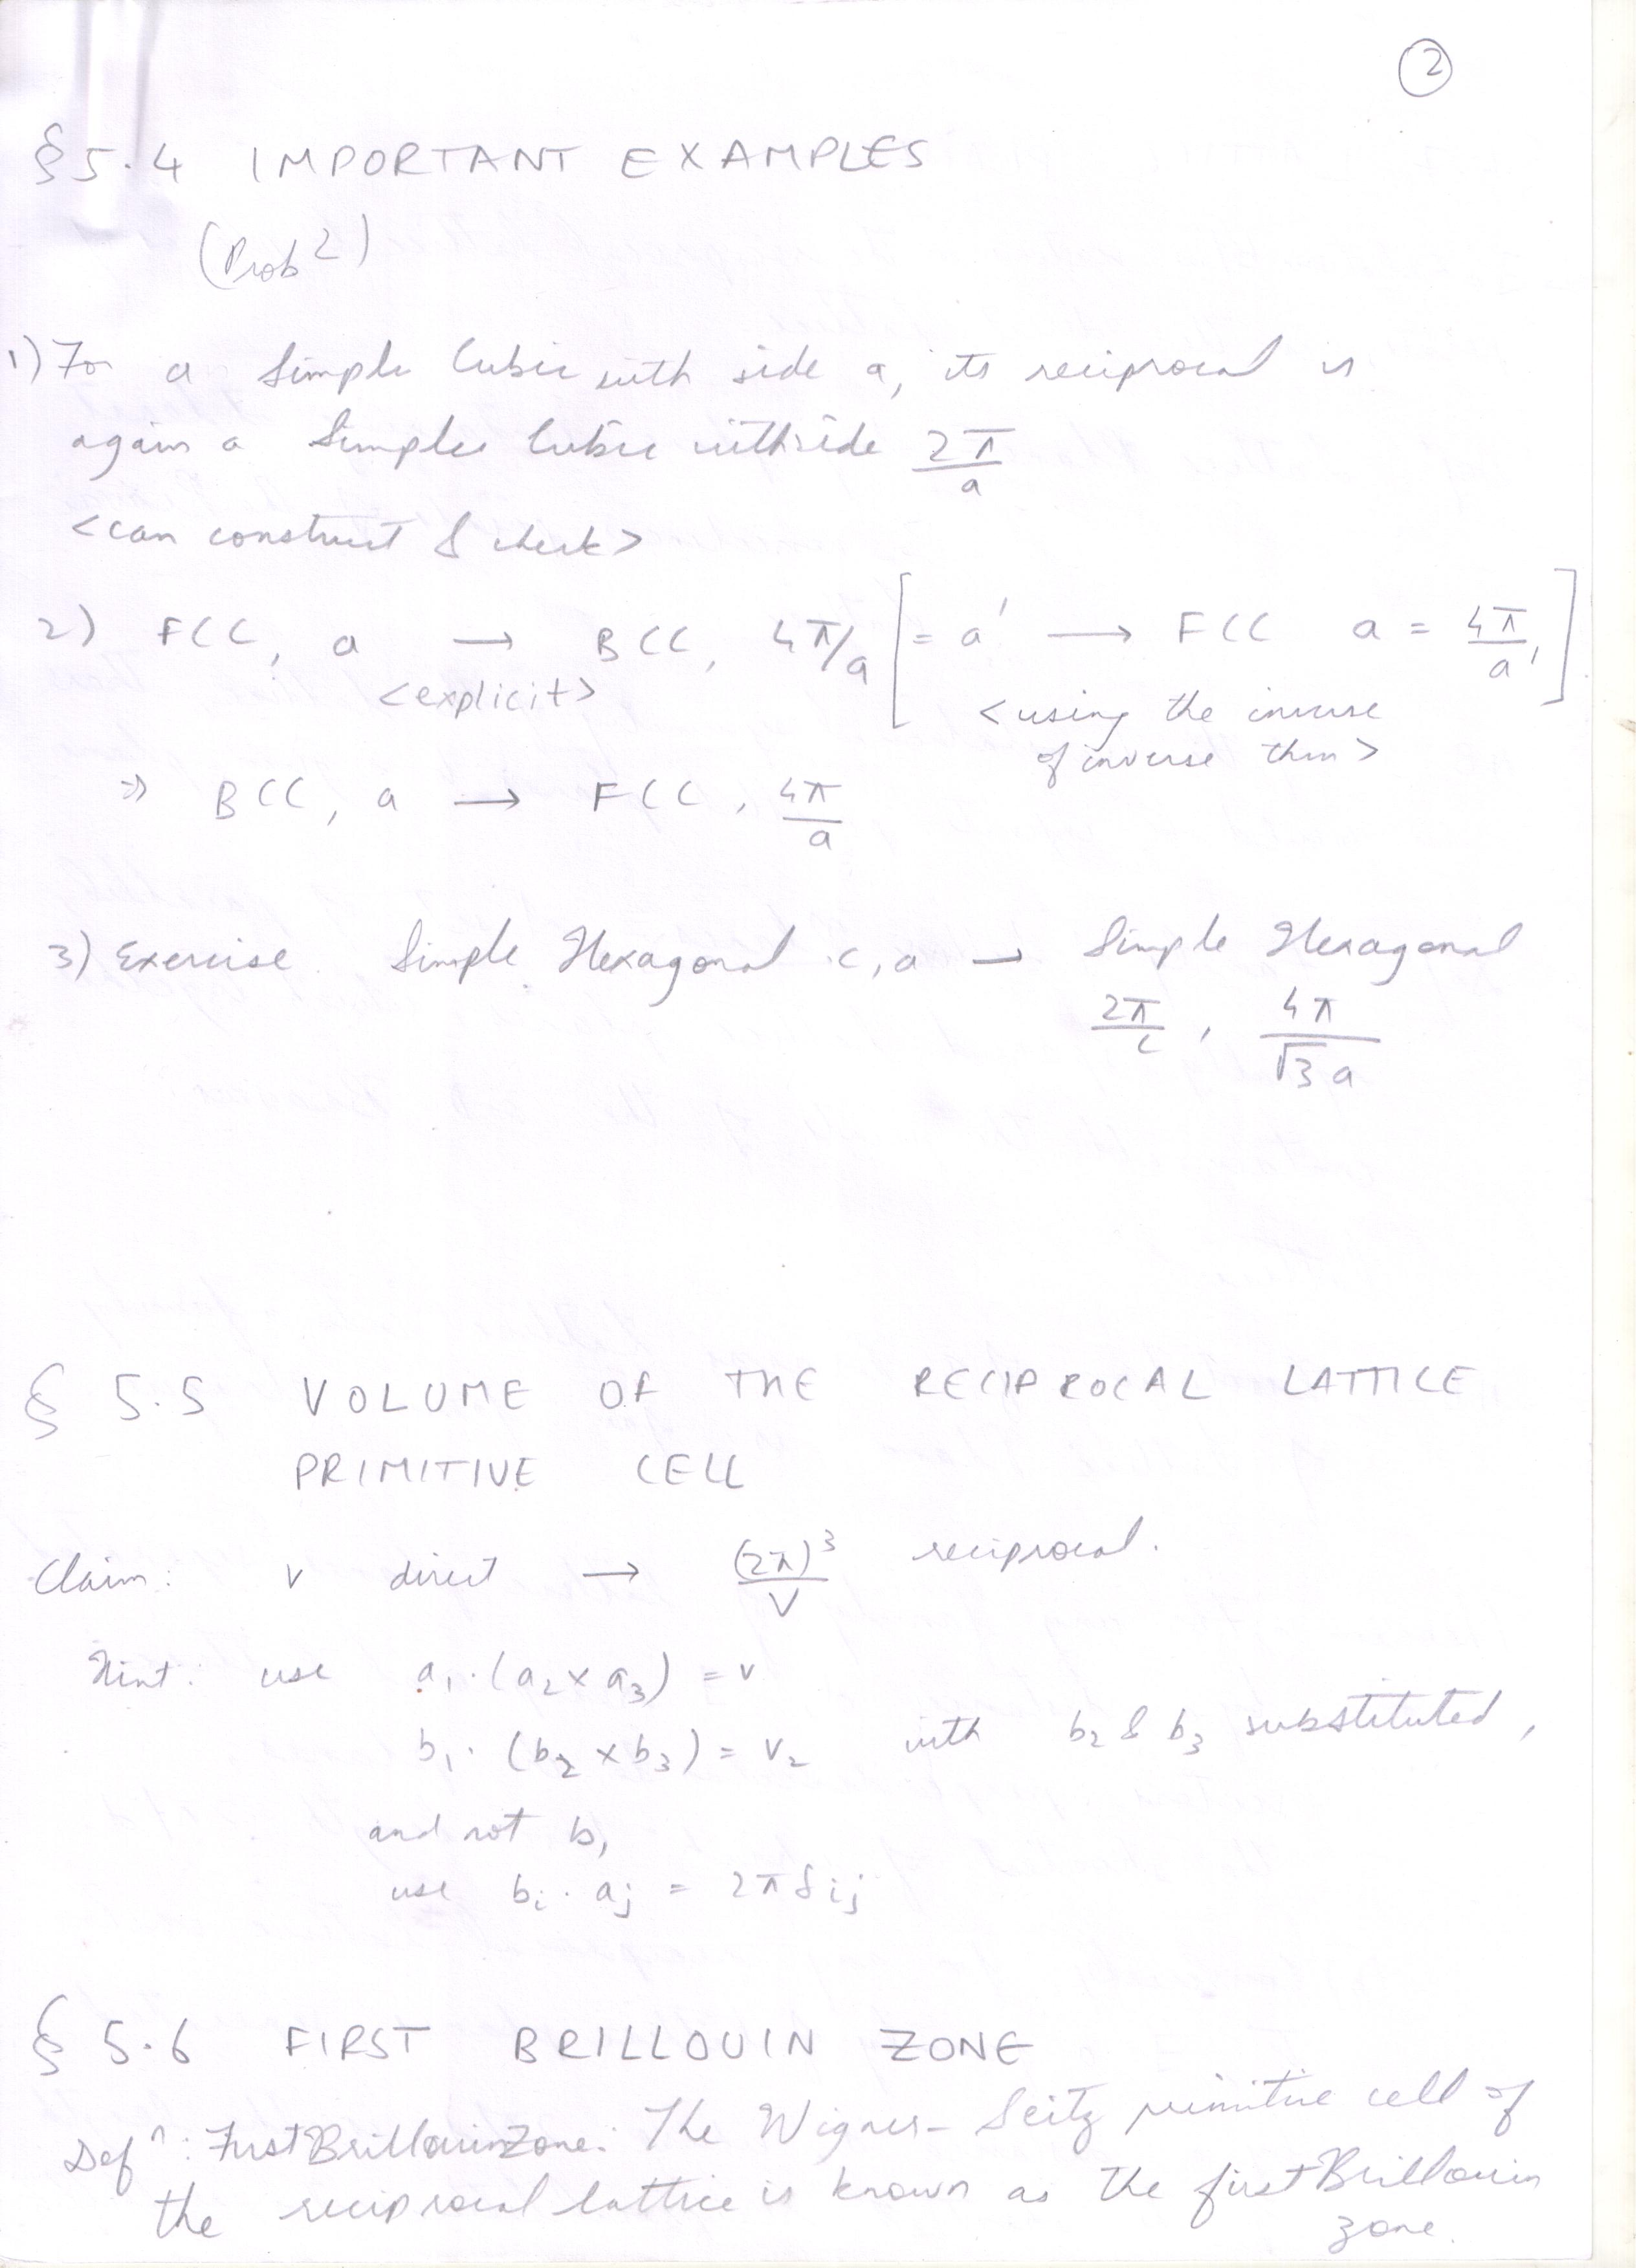 2
§ 5.4 IMPORTANT EXAMPLES
(Prob 2)
1) For a Simple Cubic with side a, its reciprocal is
again a Simple Cubic with side 2π/a
<can construct & check>
2) FCC, a → BCC, 4π/a [= a' → FCC a = 4π/a']
<explicit> <using the inverse
of inverse thm>
⇒ BCC, a → FCC, 4π/a
3) Exercise. Simple Hexagonal c, a → Simple Hexagonal
2π/c, 4π/√3a
§ 5.5 VOLUME OF THE RECIPROCAL LATTICE
PRIMITIVE CELL
Claim: v direct → (2π)³/v reciprocal.
Hint: use a₁·(a₂×a₃) = v
b₁·(b₂×b₃) = v₂ with b₂ & b₃ substituted,
and not b₁
use bᵢ·aⱼ = 2πδᵢⱼ
§ 5.6 FIRST BRILLOUIN ZONE
Defⁿ: First Brillouin Zone: The Wigner-Seitz primitive cell of
the reciprocal lattice is known as the first Brillouin
zone.